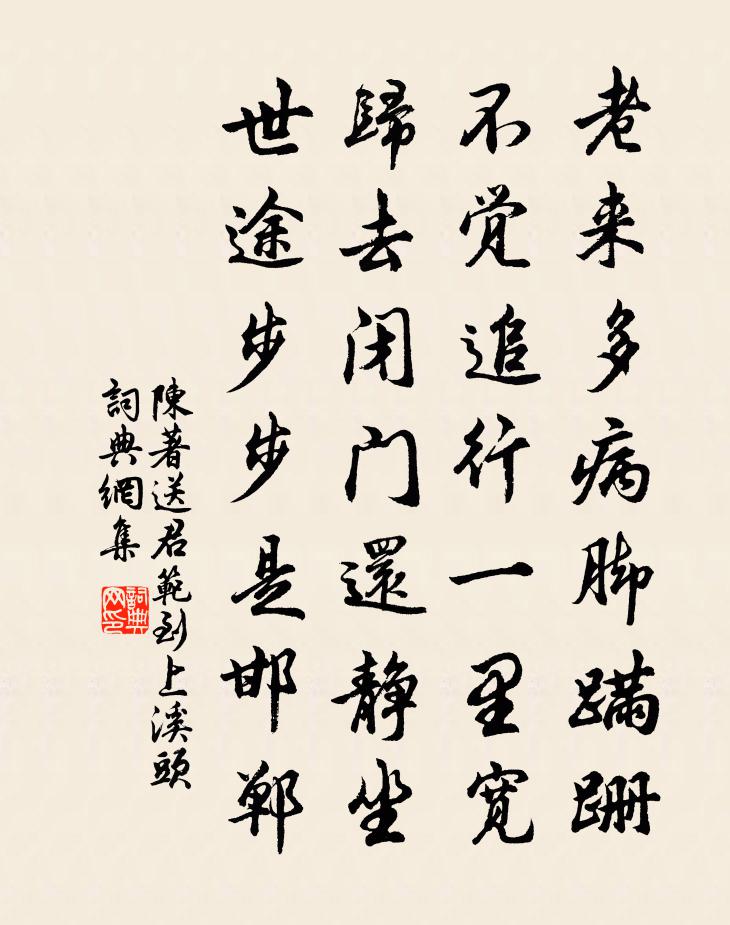 老来多病脚蹣跚
不觉追行一里寛
歸去闭门還静坐
世途步步是邯鄲
陳著送君範到上溪頭
詞典網集
詞典网印